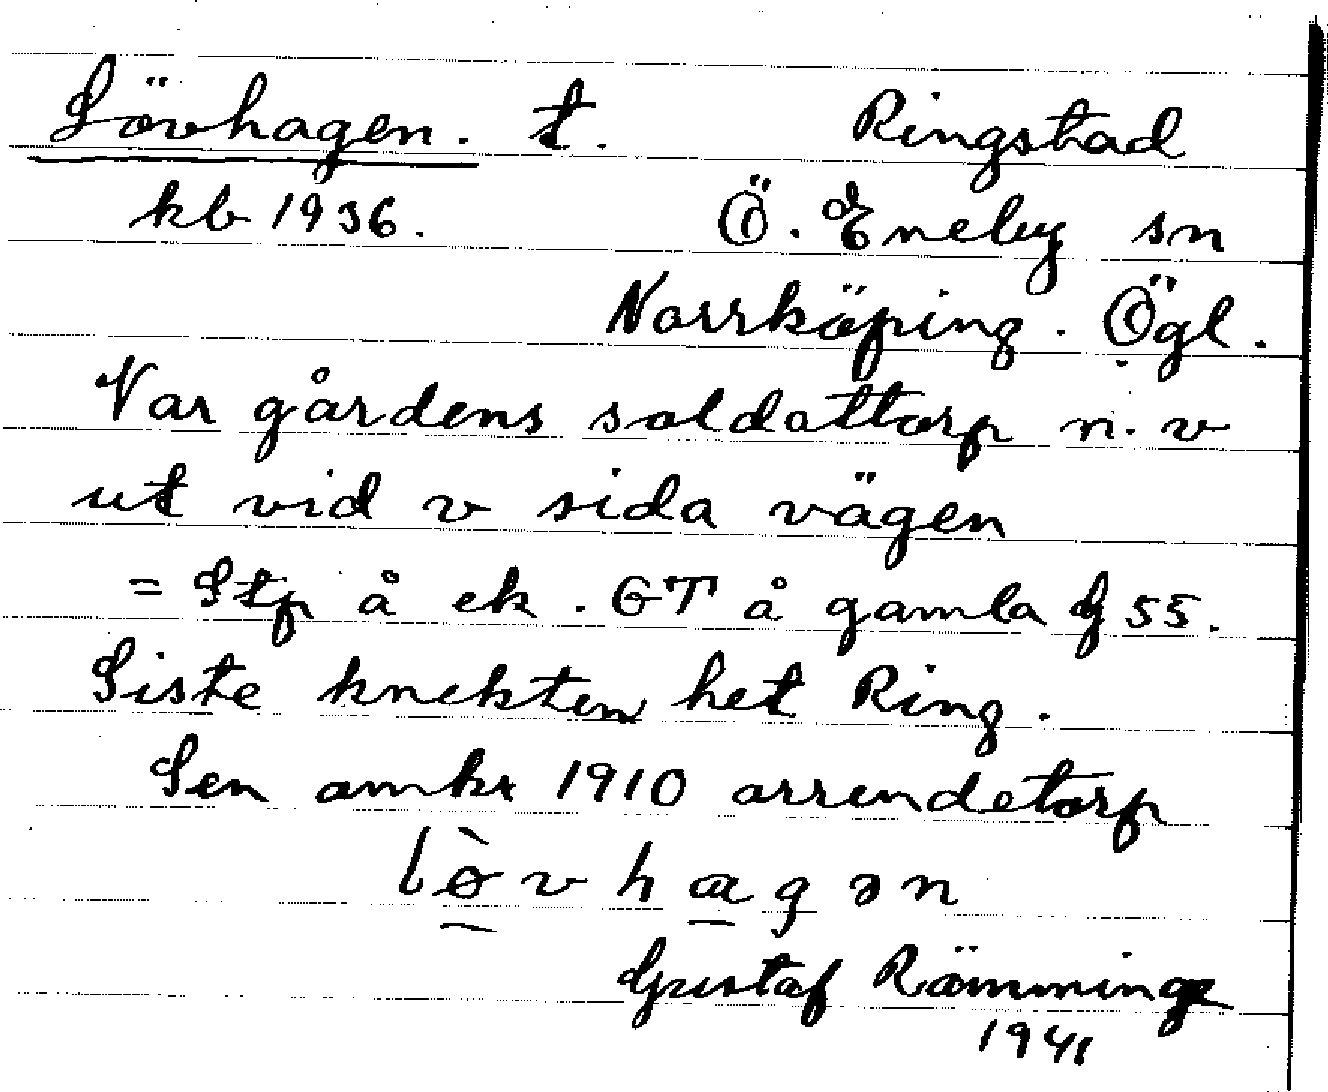 Lövhagen. t. Ringstad
kb 1936. Ö. Eneby sn
Norrköping. Ögl.
Var gårdens soldattorp n. v
ut vid v sida vägen
= Stp å ek. GT å gamla G 55.
Siste knekten het Ring.
Sen omkr 1910 arrendetorp
lòvhagən
Gustaf Rämminge
1941